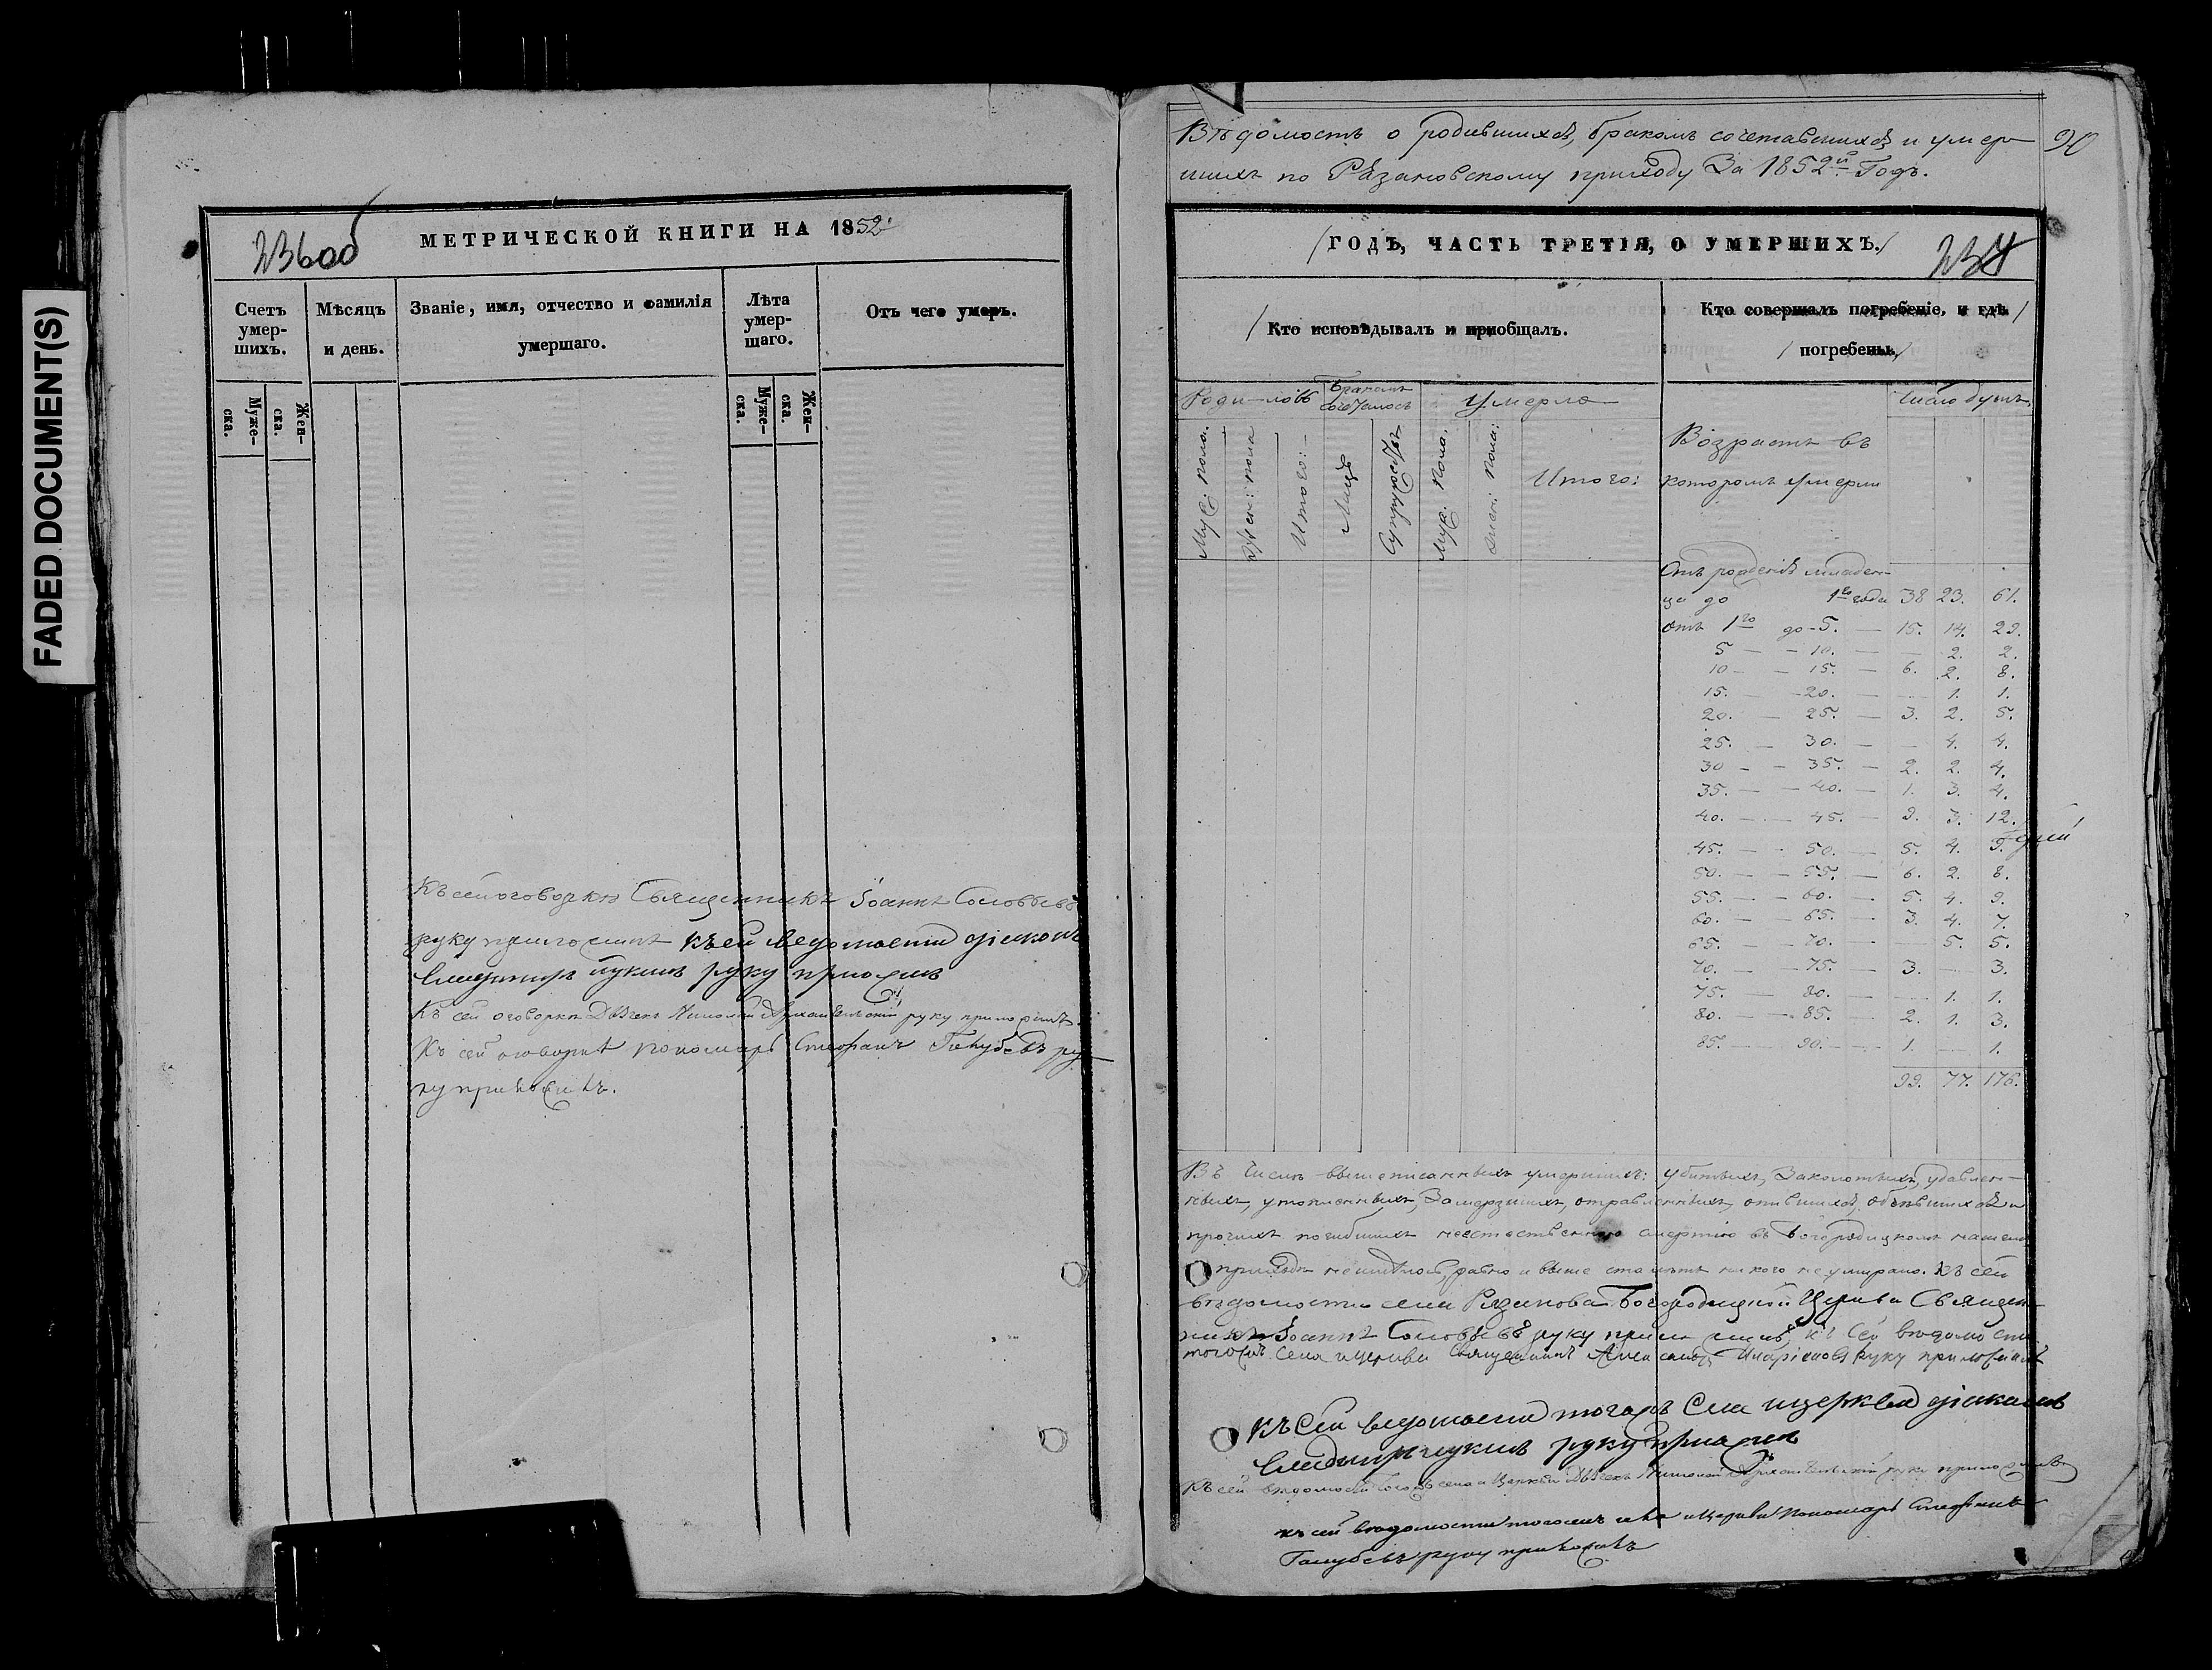 FADED DOCUMENT(S)
МЕТРИЧЕСКОЙ КНИГИ НА 1852
236об
Счетъ умер-шихъ.
Мѣсяцъ и день.
Званіе, имя, отчество и фамилія умершаго.
Лѣта умер-шаго.
Отъ чего умеръ.
Муже-ска.
Жен-ска.
Муже-ска.
Жен-ска.
Къ сей оговоркѣ Священникъ Іоаннъ Соловьевъ
руку приложилъ къ сей ведомости діаконъ
руку приложилъ
Къ сей оговоркѣ Дьячекъ Николай Архангельскій руку приложилъ.
Къ сей оговоркѣ пономарь Стефанъ Голубевъ ру-
ку приложилъ.
Вѣдомость о родившихся, бракомъ сочетавшихся и умер-
шихъ по Рязановскому приходу За 1852й Годъ.
90
ГОДЪ, ЧАСТЬ ТРЕТІЯ, О УМЕРШИХЪ.
Кто исповѣдывалъ и пріобщалъ.
Кто совершалъ погребеніе, и гдѣ погребены.
Роди-лось
Бракомъ сочеталось
Умерло
Число душъ
Муж. пола.
Жен: пола
Итого:
Лицъ
Супружествъ
Муж. пола.
Жен: пола:
Итого:
Возрастъ въ
которомъ умерли
Отъ рожденія младен-
ца до 1го года 38 23. 61.
Отъ 1го до 5. — 15. 14. 29.
5 — 10. — — 2. 2.
10 — 15. — 6. 2. 8.
15. — 20. — — 1. 1.
20. — 25. — 3. 2. 5.
25. — 30. — — 4. 4.
30 — 35. — 2. 2. 4.
35. — 40. — 1. 3. 4.
40. — 45. — 9. 3. 12.
45. — 50. — 5. 4. 9.
50. — 55. — 6. 2. 8.
55. — 60. — 5. 4. 9.
60. — 65. — 3. 4. 7.
65. — 70. — — 5. 5.
70. — 75. — 3. — 3.
75. — 80. — — 1. 1.
80. — 85. — 2. 1. 3.
85. — 90. — 1. — 1.
99. 77. 176.
Въ числѣ вышеписанныхъ умершихъ: убитыхъ, Заколотыхъ, удавлен-
ныхъ, утопленныхъ, Замерзшихъ, отравленныхъ, опившихся, объѣвшихся и
прочихъ погибшихъ неестественною смертію въ Богородицкомъ нашемъ
приходѣ не имѣлось, равно и выше ста лѣтъ никого не умирало. Къ сей
вѣдомости села Рязанова Богородицкой Церкви Священ-
никъ Іоаннъ Соловьевъ руку приложилъ, къ Сей вѣдомости
тогожъ села и церкви Священникъ руку приложилъ
Къ Сей ведомости тогожъ Села и церкви діаконъ
руку приложилъ
Къ сей вѣдомости тогожъ села и Церкви Дьячекъ Николай Архангельскій руку приложилъ
къ сей вѣдомости тогожъ села и Церкви Пономарь Стефанъ
Голубевъ руку приложилъ